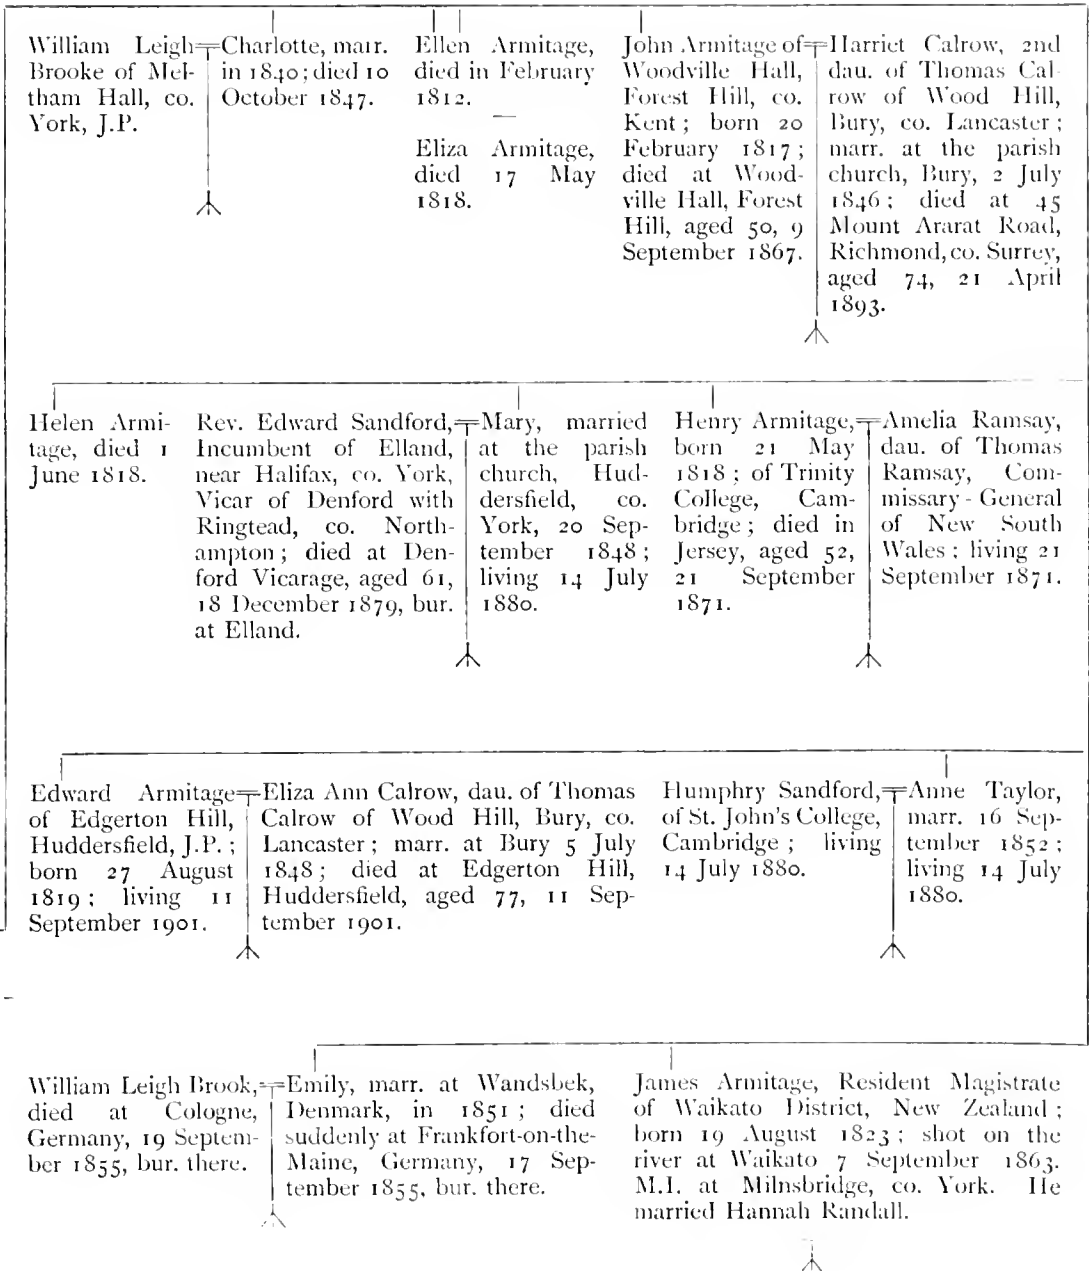 William Leigh
Brooke of Mel-
tham Hall, co.
York, J.P.
Charlotte, marr.
in 1840; died 10
October 1847.
Ellen Armitage,
died in February
1812.
—
Eliza Armitage,
died 17 May
1818.
John Armitage of
Woodville Hall,
Forest Hill, co.
Kent; born 20
February 1817;
died at Wood-
ville Hall, Forest
Hill, aged 50, 9
September 1867.
Harriet Calrow, 2nd
dau. of Thomas Cal-
row of Wood Hill,
Bury, co. Lancaster;
marr. at the parish
church, Bury, 2 July
1846; died at 45
Mount Ararat Road,
Richmond, co. Surrey,
aged 74, 21 April
1893.
Helen Armi-
tage, died 1
June 1818.
Rev. Edward Sandford,
Incumbent of Elland,
near Halifax, co. York,
Vicar of Denford with
Ringtead, co. North-
ampton; died at Den-
ford Vicarage, aged 61,
18 December 1879, bur.
at Elland.
Mary, married
at the parish
church, Hud-
dersfield, co.
York, 20 Sep-
tember 1848;
living 14 July
1880.
Henry Armitage,
born 21 May
1818; of Trinity
College, Cam-
bridge; died in
Jersey, aged 52,
21 September
1871.
Amelia Ramsay,
dau. of Thomas
Ramsay, Com-
missary-General
of New South
Wales; living 21
September 1871.
Edward Armitage
of Edgerton Hill,
Huddersfield, J.P.;
born 27 August
1819; living 11
September 1901.
Eliza Ann Calrow, dau. of Thomas
Calrow of Wood Hill, Bury, co.
Lancaster; marr. at Bury 5 July
1848; died at Edgerton Hill,
Huddersfield, aged 77, 11 Sep-
tember 1901.
Humphry Sandford,
of St. John's College,
Cambridge; living
14 July 1880.
Anne Taylor,
marr. 16 Sep-
tember 1852;
living 14 July
1880.
William Leigh Brook,
died at Cologne,
Germany, 19 Septem-
ber 1855, bur. there.
Emily, marr. at Wandsbek,
Denmark, in 1851; died
suddenly at Frankfort-on-the-
Maine, Germany, 17 Sep-
tember 1855, bur. there.
James Armitage, Resident Magistrate
of Waikato District, New Zealand;
born 19 August 1823; shot on the
river at Waikato 7 September 1863.
M.I. at Milnsbridge, co. York. He
married Hannah Randall.